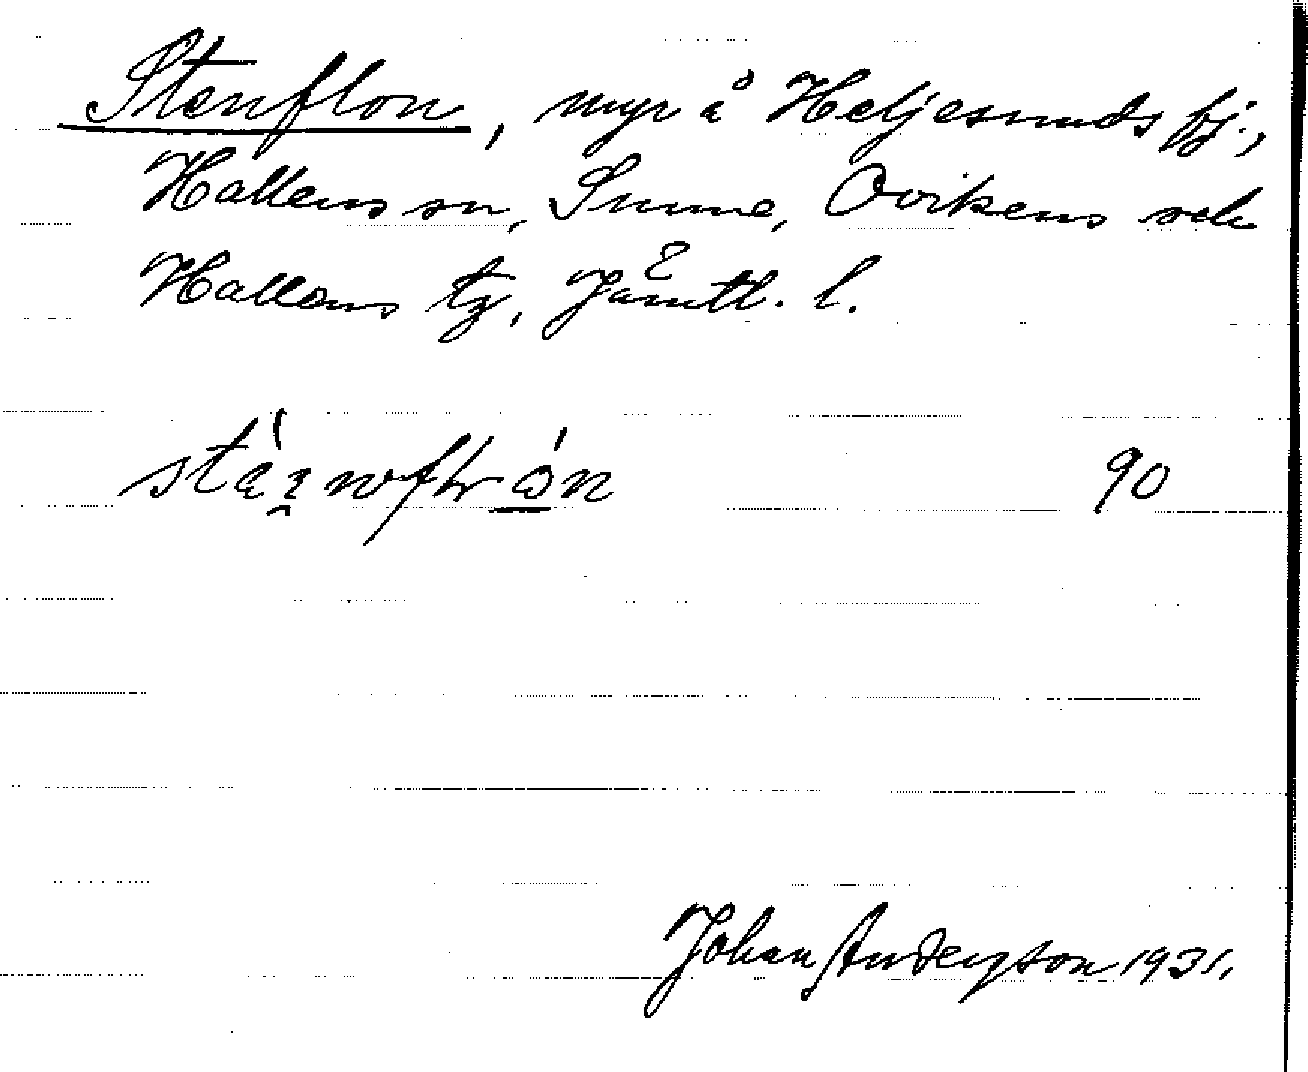 Stenflon, myr å Heljesunds fj.,
Hallens sn, Sunne, Ovikens och
Hallens tg, Jämtl. l.
90
Johan Anderson 1931.